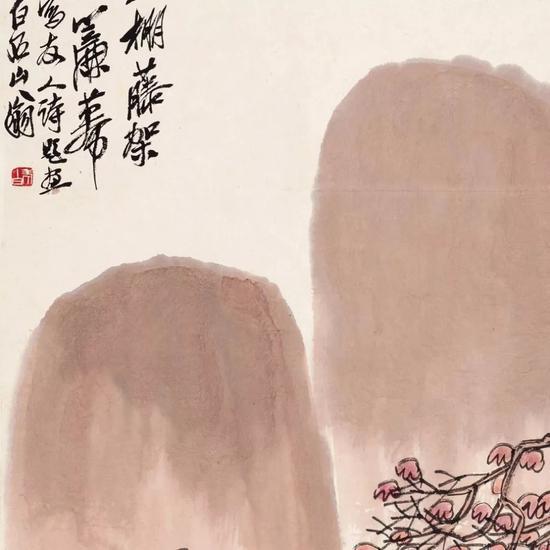 棚藤架
簾幕
寫友人詩題畫
白石山翁